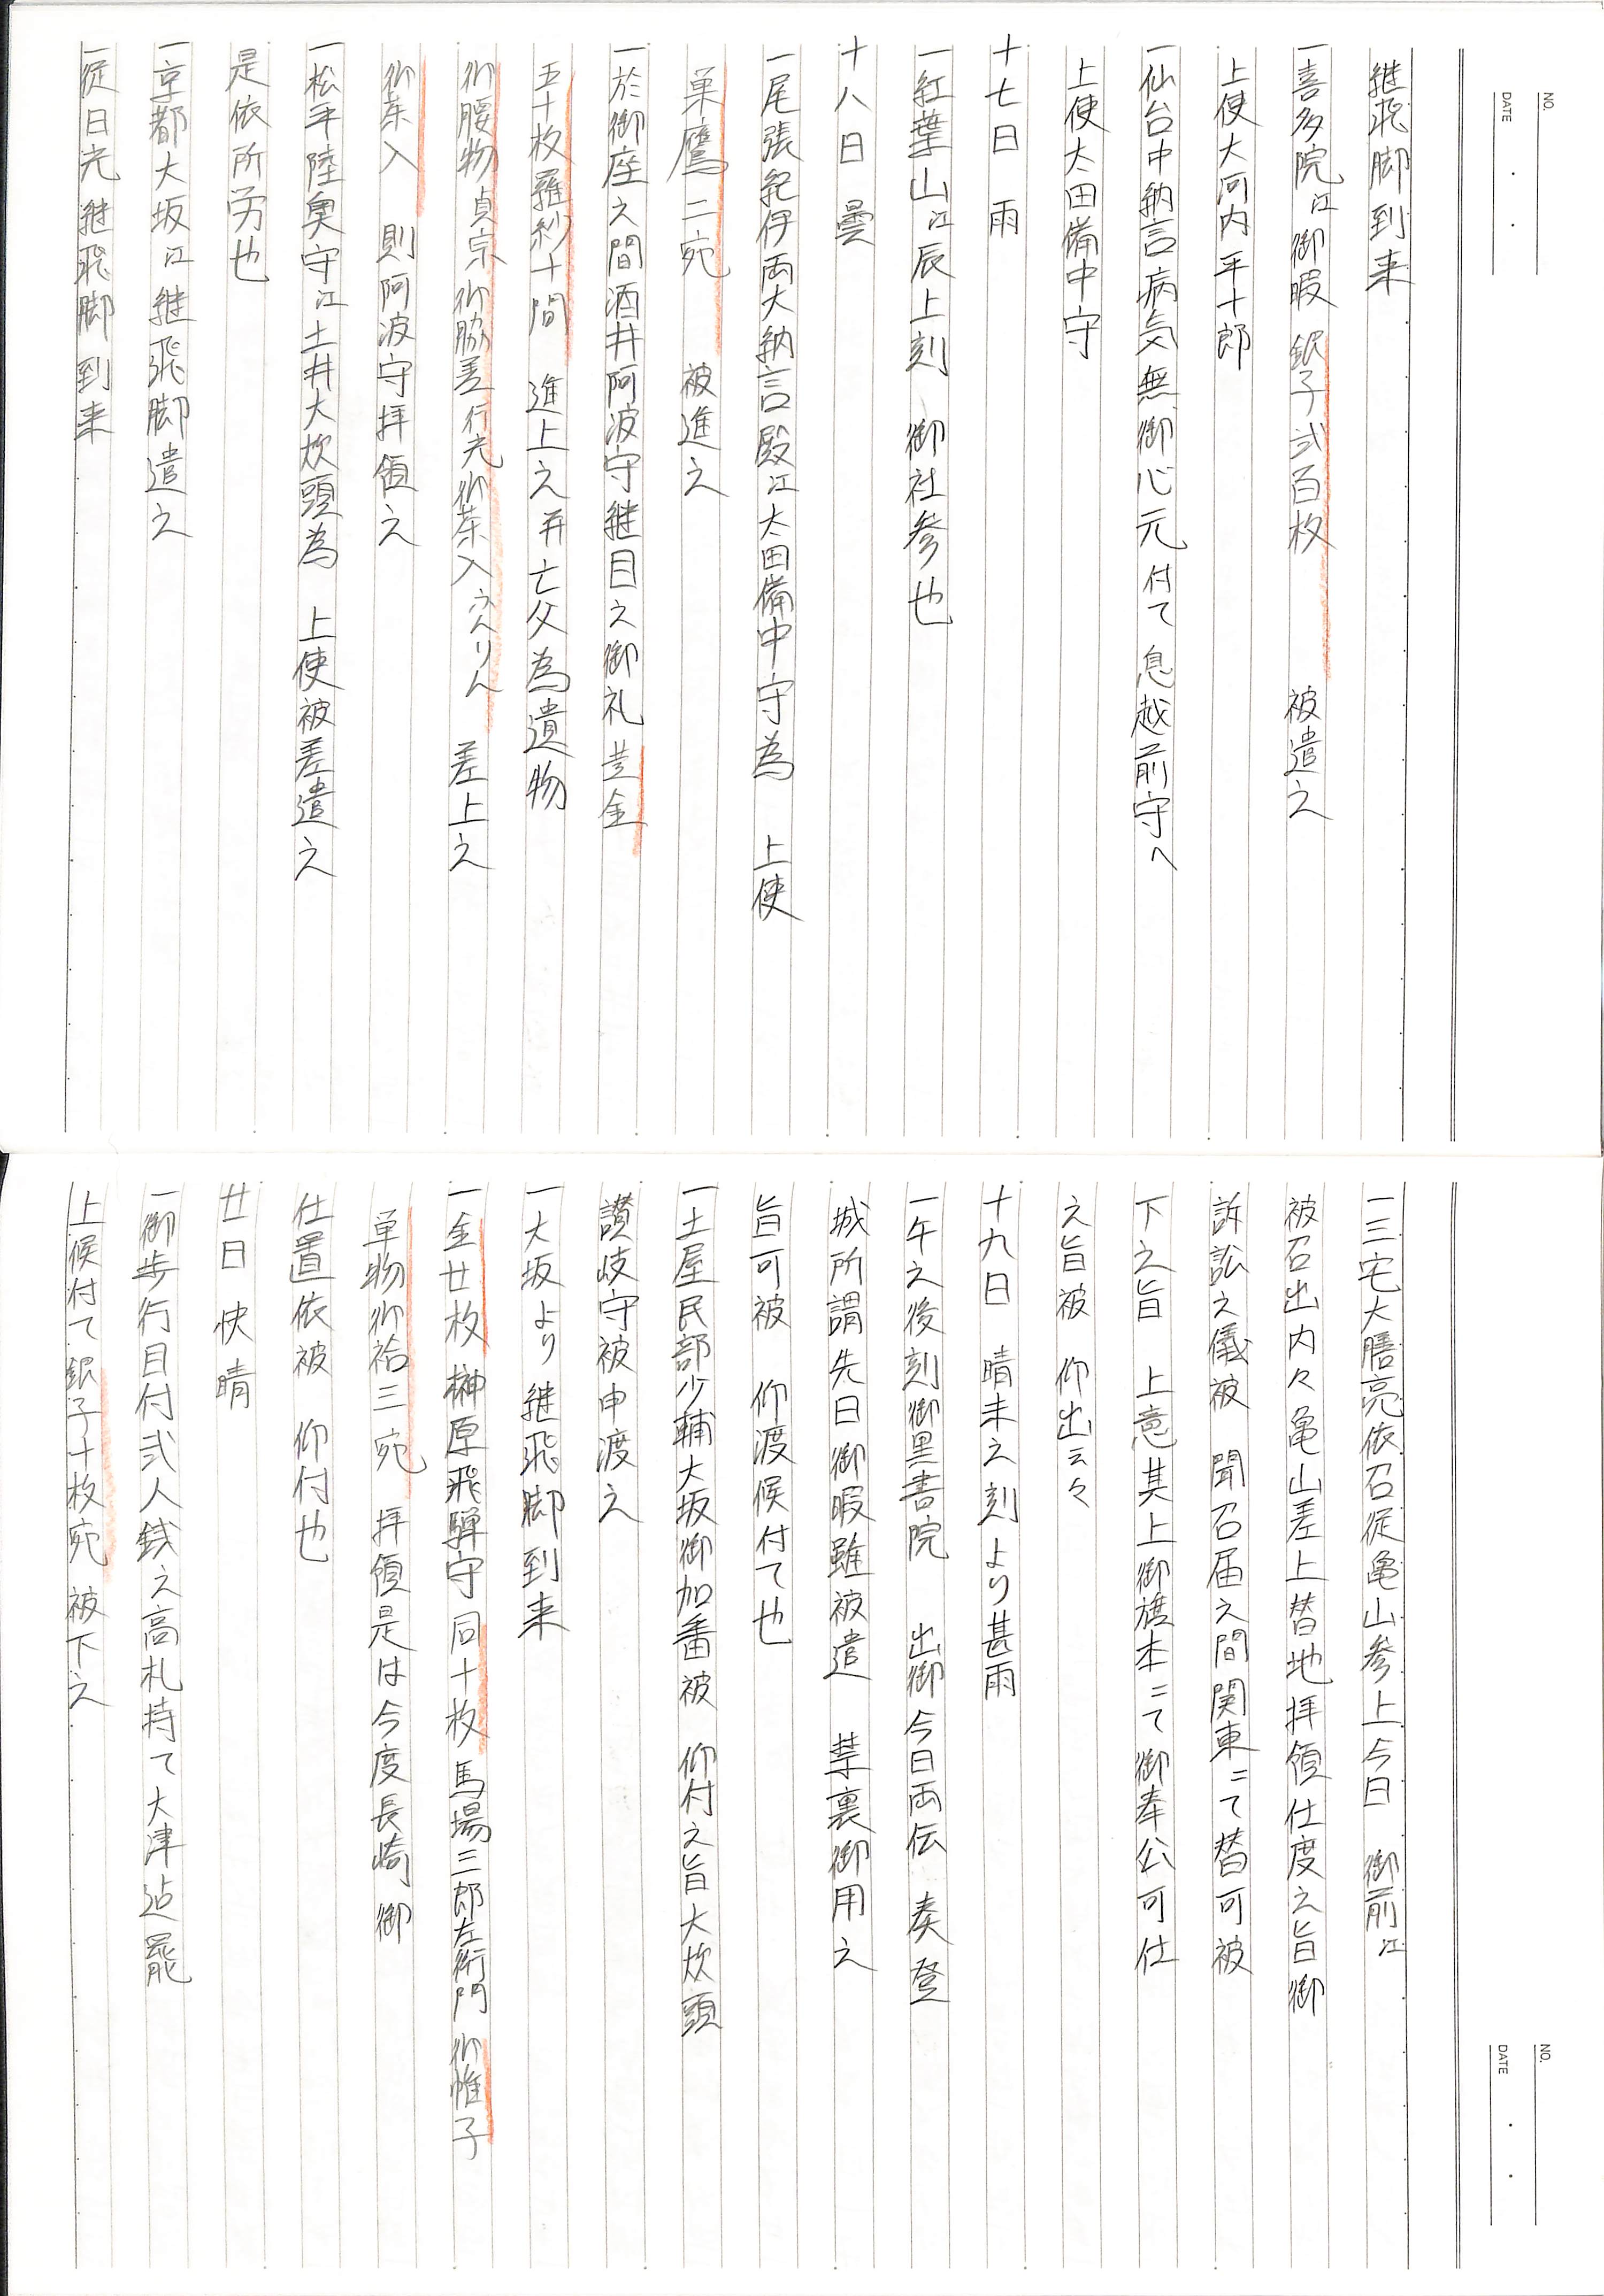 NO.
DATE
継飛脚到来
一喜多院江御暇 銀子弐百枚 被遣之
上使大河内平十郎
一仙台中納言病気無御心元付て 息越前守へ
上使太田備中守
十七日 雨
一紅葉山江辰上刻 御社参也
十八日 曇
一尾張紀伊両大納言殿江太田備中守為 上使
巣鷹二宛 被進之
一於御座之間酒井阿波守継目之御礼 黄金
五十枚羅紗十間 進上之并亡父為遺物
御腰物貞宗御脇差行光御茶入 差上之
御茶入 則阿波守拝領之
一松平陸奥守江土井大炊頭為 上使被差遣之
是依所労也
一京都大坂江継飛脚遣之
一従日光継飛脚到来
NO.
DATE
一三宅大膳亮依召従亀山参上今日 御前江
被召出内々亀山差上替地拝領仕度之旨御
訴訟之儀被 聞召届之間関東ニて替可被
下之旨 上意其上御旗本ニて御奉公可仕
之旨被 仰出云々
十九日 晴未之刻より甚雨
一午之後刻御黒書院 出御今日両伝 奏登
城所謂先日御暇雖被遣 禁裏御用之
旨可被 仰渡候付て也
一土屋民部少輔大坂御加番被 仰付之旨大炊頭
讃岐守被申渡之
一大坂より継飛脚到来
一金廿枚 榊原飛騨守 同十枚 馬場三郎左衛門 御帷子
単物御袷三宛 拝領是は今度長崎 御
仕置依被 仰付也
廿日 快晴
一御歩行目付弐人銭之高札持て大津迄罷
上候付て銀子十枚宛 被下之